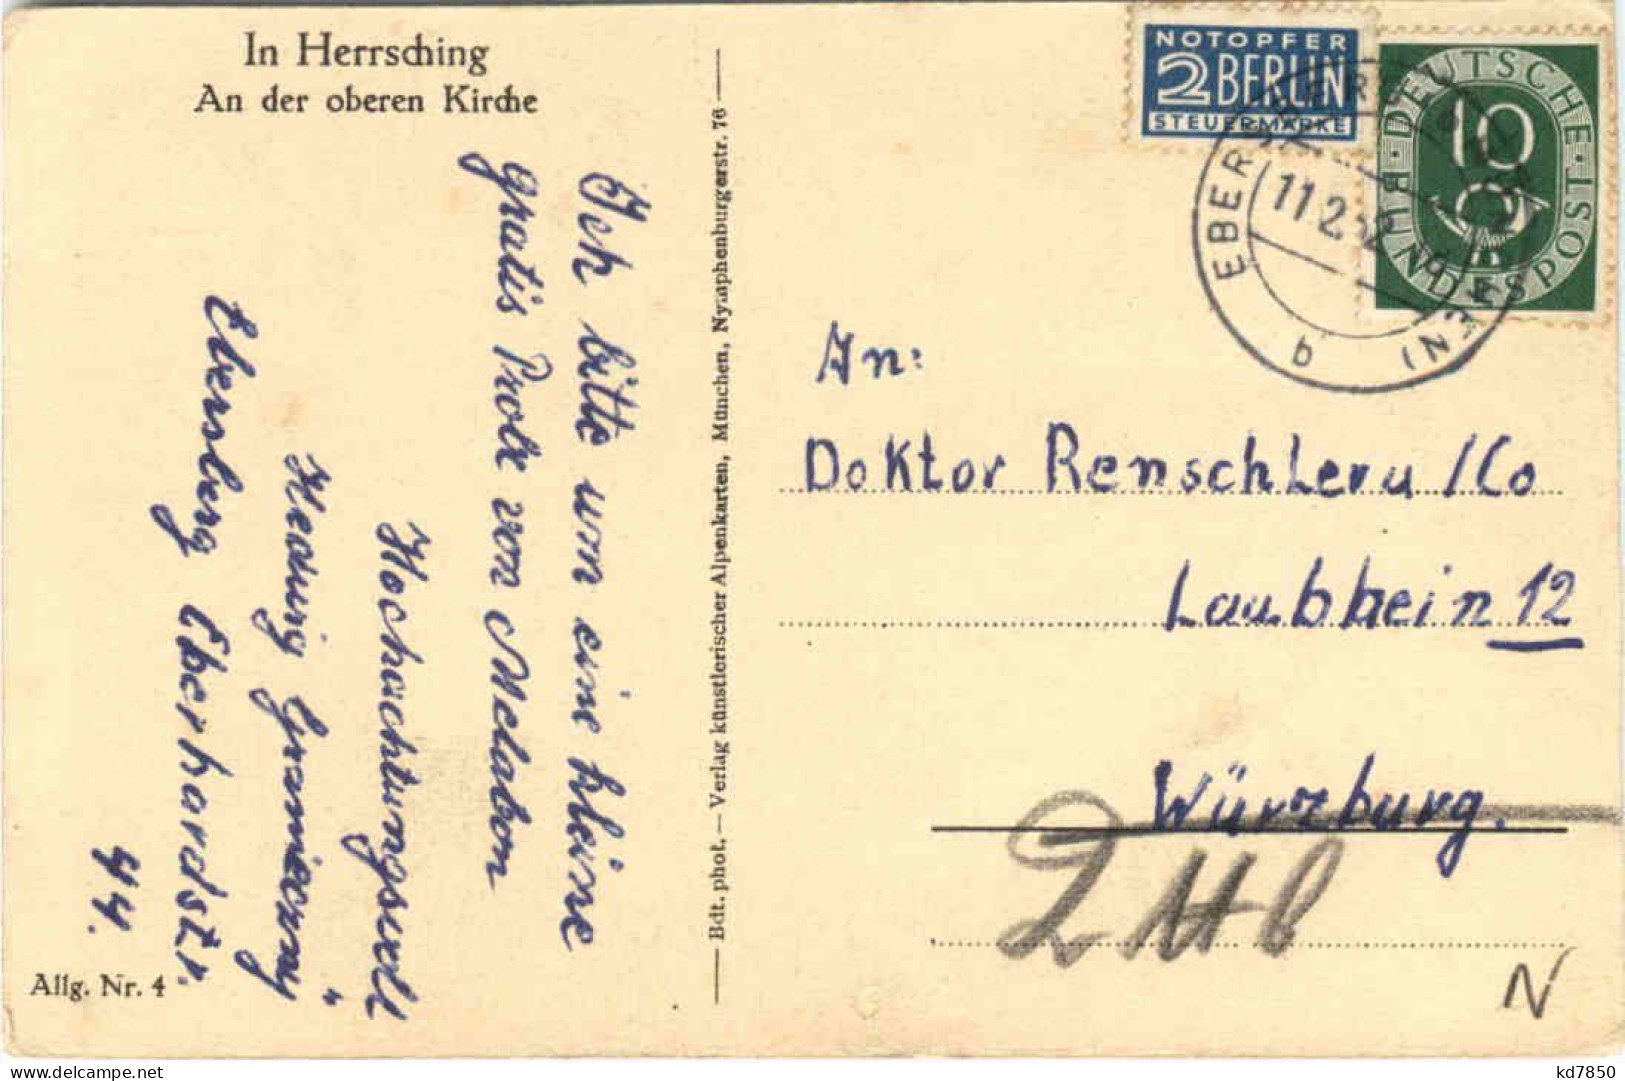 In Herrsching
An der oberen Kirche
Ich bitte um eine kleine
gratis Probe von Melabon
Hochachtungsvoll
Hedwig
Ebersberg Eberhardstr.
44.
Allg. Nr. 4
Bdt. phot. — Verlag künstlerischer Alpenkarten, München, Nymphenburgerstr. 76
NOTOPFER
2 BERLIN
STEUERMARKE
DEUTSCHE BUNDESPOST
10
EBERSBERG
11.2.52
b
An:
Doktor Renschler u / Co
Laubhein 12
Würzburg.
N
kd7850